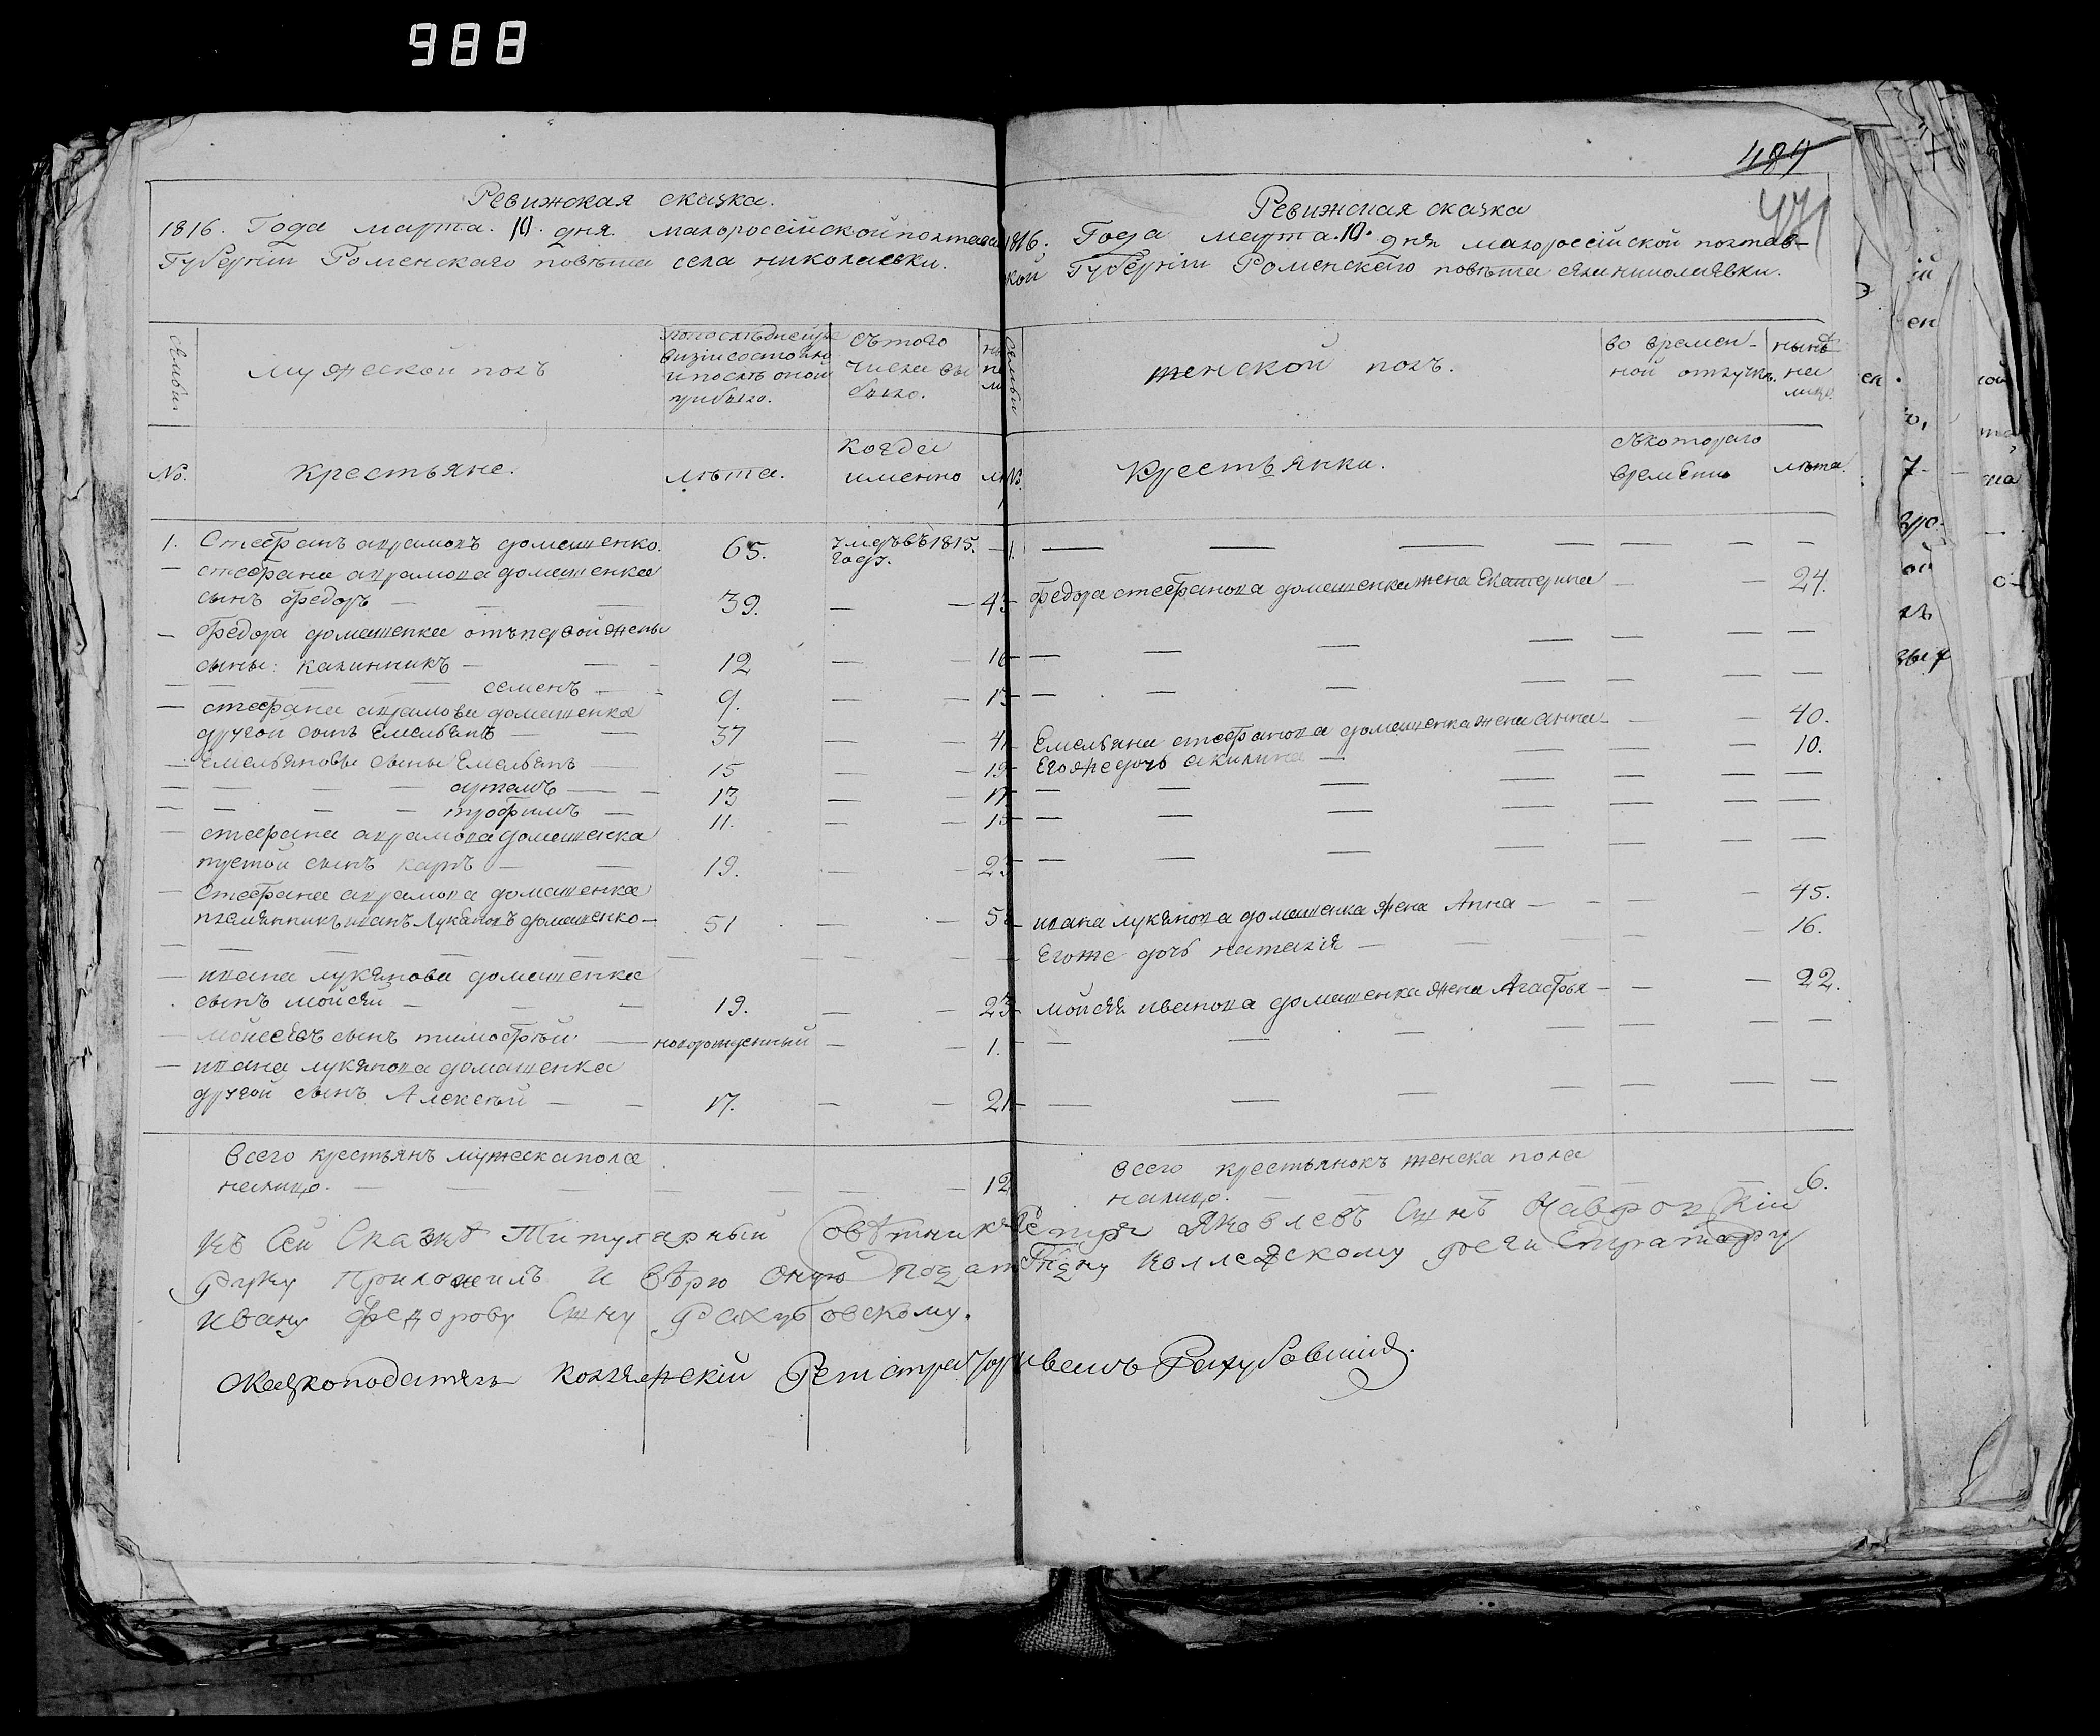 988
489
471
Ревижская сказка.
1816. Года марта. 10. дня. малороссійской полтавс
Губерніи Роменскаго повѣта села николаевки.
семьи
мужеской полъ
попоследней ре
визіи состояло
и послѣ оной
прибыло.
съ того
числа вы
было.
No.
крестьяне.
лѣта.
когда
именно
1. Стефанъ аврамовъ домашенко. 65. умдъ въ 1815.
году.
— стефана аврамова домашенка
сынъ федоръ — 39. — 43
— федора домашенка отъ первой жены
сыны: калинникъ — 12 — 16
семенъ — 9. — 13
— стефана аврамова домашенка
другой сынъ Емельянъ — 37 — 41
— Емельяновы сыны Емельянъ — 15 — 19
артемъ — 13 — 17
трофимъ — 11. — 15
— стефана аврамова домашенка
третой сынъ карпъ — 19. — 23
— Стефана аврамова домашенка
племянникъ иванъ Лукяновъ домашенко — 51 — 5
— ивана лукянова домашенка
сынъ мойсей — 19. — 23
— мойсеевъ сынъ тимофѣй — новорожденный — 1.
— ивана лукянова домашенка
другой сынъ Алексѣй — 17. — 21
всего крестьянъ мужеска пола
налицо. — 12
Ревижская сказка
1816. Года марта. 10. дня малороссійской полтав-
кой Губерніи Роменскаго повѣта села николаевки.
семьи
женской полъ.
во времен-
ной отлучкѣ.
нынѣ
на
лицо.
No.
Крестьянки.
съ котораго
времени
лѣта.
1.
федора стефанова домашенка жена Екатерина — 24.
Емельяна стефанова домашенка жена анна — 40.
Его же дочь акилина — 10.
ивана лукянова домашенка жена Анна — 45.
Его же дочь наталія — 16.
мойсея иванова домашенка жена Агафья — 22.
всего крестьянокъ женска пола
налицо. 6.
Къ Сей Сказкѣ Титулярный Совѣтникъ Петръ Яковлевъ Сынъ
руку Приложилъ и вѣрю Оную Подать Колле жскому регистратору
Ивану Федорову Сыну Рахубовскому.
Сказкоподатель коллежскій Регистраторъ Иванъ Рахубовский.